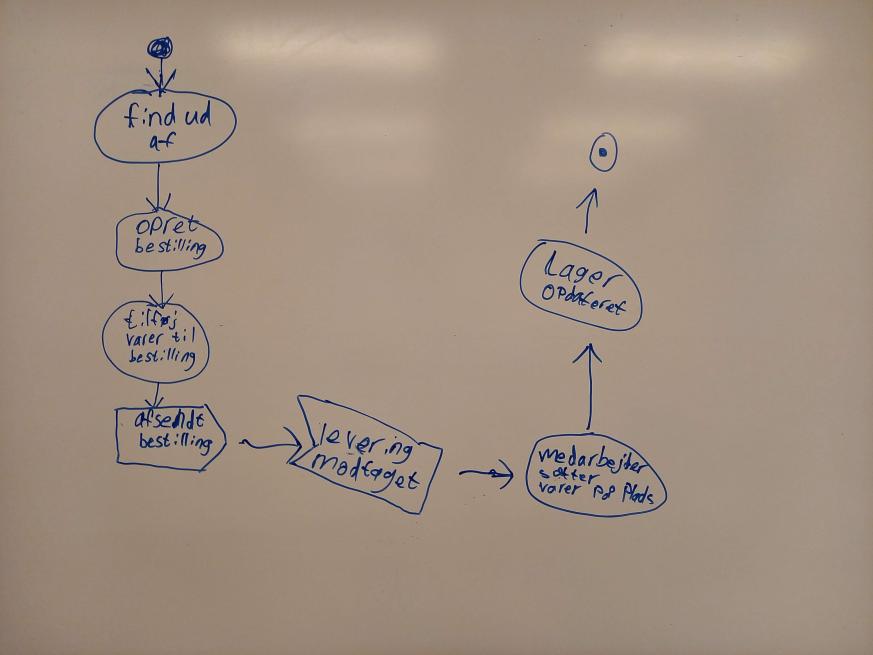 find ud
af
opret
bestilling
tilføj
varer til
bestilling
afsendt
bestilling
levering
modtaget
medarbejder
sætter
varer på plads
Lager
opdateret